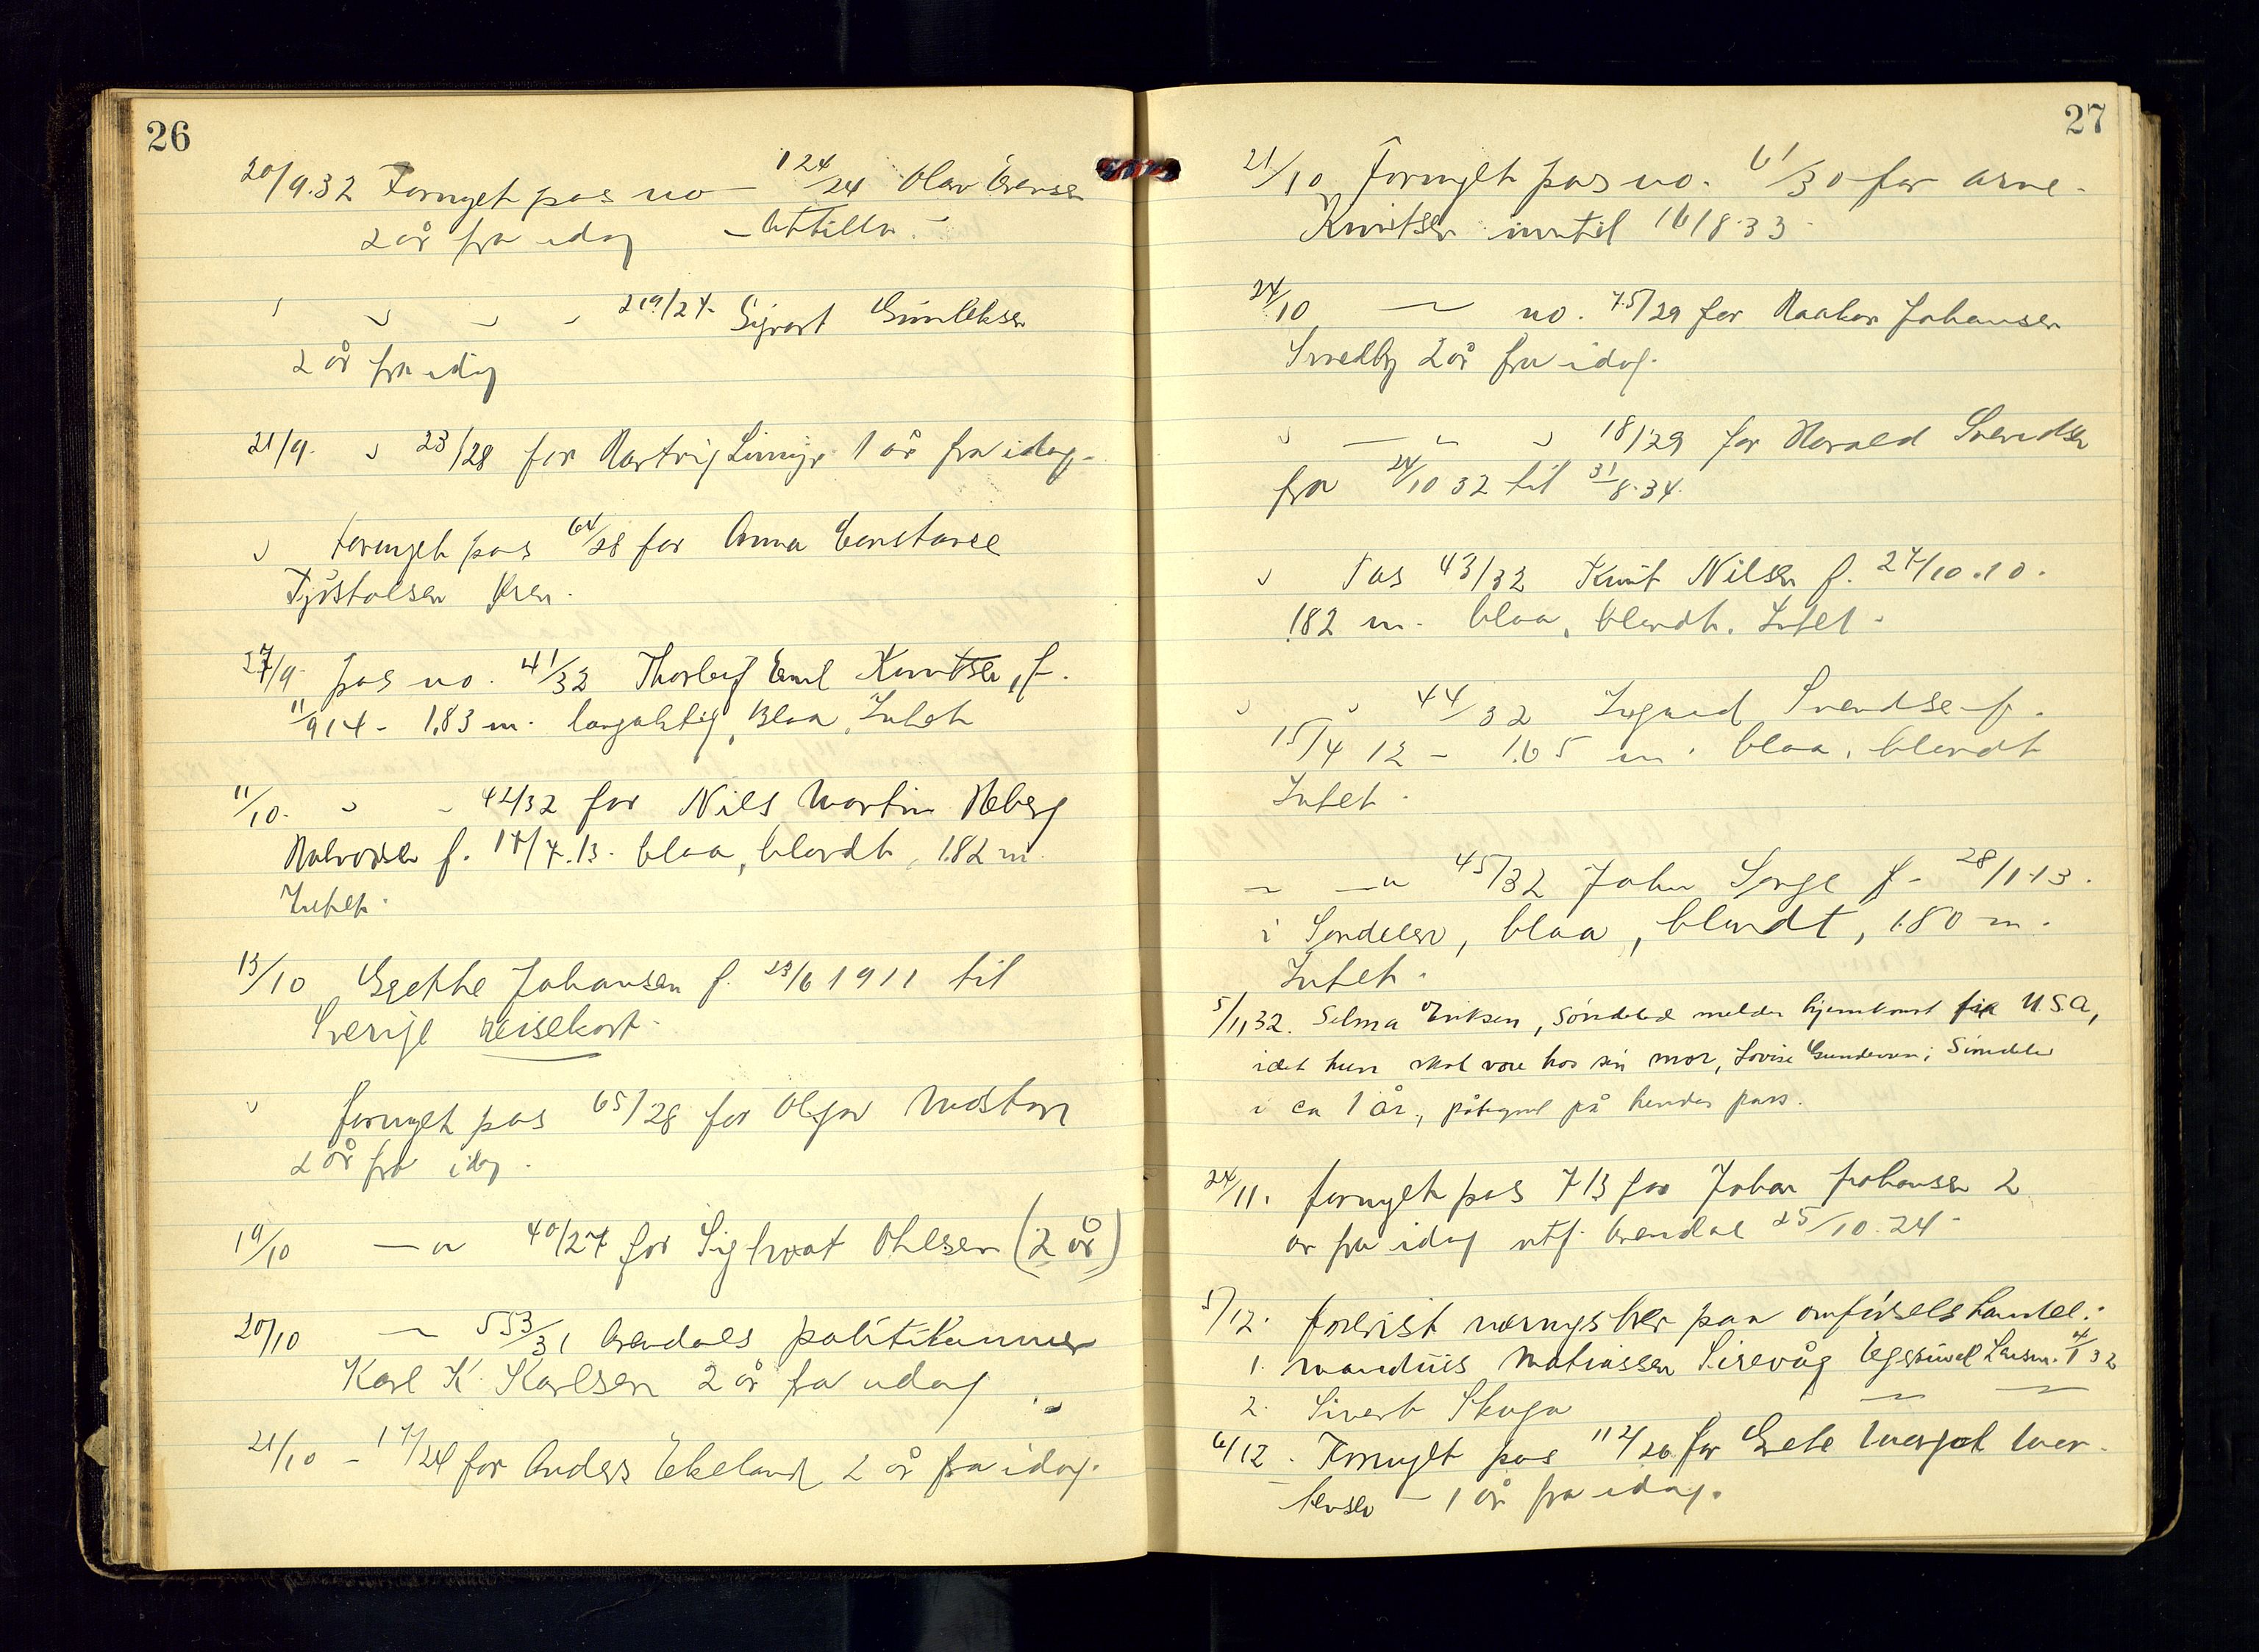 26
20/9.32 Fornyet pas no – 124/24 Olav Evensen
2 år fra idag – Attilla.
" " " " 219/24. Sigvart Gundersen
2 år fra idag
21/9. " 23/28 for Hartvig Limyr 1 år fra idag.
" Fornyet pas 64/28 for Anna Constance
Tjöstolsen
27/9. pas no. 41/32 Thorleif Emil Knutsen, f.
11/9 14 – 1,83 m. langaktig, Blaa, Intet
11/10. " – 42/32 for Nils Martin Heberg
Halvorsen f. 17/7.13. blaa, blondt, 1.82 m.
Intet.
13/10 Grethe Johansen f. 23/6 1911 til
Sverige reisekort.
" fornyet pas 65/28 for Olga
2 år fra idag.
19/10 — " 40/27 for Sighvat Ohlsen (2 år)
20/10 — 553/31 Arendals politikammer
Karl K. Karlsen 2 år fra idag
21/10 – 17/24 for Anders Ekeland 2 år fra idag.
27
21/10 Fornyet pas no. 61/30 for Arne
Knutsen inntil 16/8.33.
24/10 — no. 75/29 for Haakon Johansen
Smedby 2 år fra idag.
" — " " 18/29 for Harald Svendsen
fra 24/10 32 til 31/8.34.
" Pas 43/32 Knut Nilsen f. 27/10.10.
182 m. blaa, blondt. Intet.
" " 44/32 Ingrid Svendsen f.
15/4 12 – 1.65 m. blaa, blondt
Intet.
" — " 45/32 John Senge f. 28/1.13.
i Søndeled, blaa, blondt, 1.80 m.
Intet.
5/11 32. Selma Eriksen, Søndeled melder hjemkomst fra U.S.A,
idet hun skal være hos sin mor, Lovise Gundersen i Søndeled
i ca 1 år, påtegnet på hendes pass.
24/11. fornyet pas 713 for Johan Johansen 2
år fra idag utf. Arendal 25/10.24.
5/12. forevist næringsbrev paa omførselshandel:
1. Mandius Mathiassen Sirevåg Egersund Lensm. 4/1 32
2. Sivert Skaga — —
6/12. Fornyet pas 112/26 for Grete Margot
– 1 år fra idag.